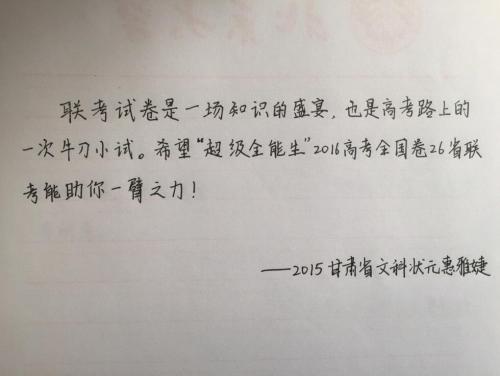 联考试卷是一场知识的盛宴，也是高考路上的
一次牛刀小试。希望“超级全能生”2016高考全国卷26省联
考能助你一臂之力！
——2015甘肃省文科状元惠雅婕